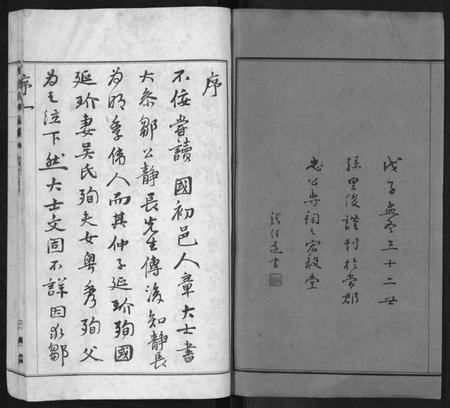 戊子孟冬三十二世
孫思俊謹刊於常郡
忠公專祠之宏毅堂
書
序
不佞嘗讀國初邑人章大士書
大參鄒公靜長先生傳後知靜長
為明季偉人而其仲子延玠殉國
延玠妻吳氏殉夫女粵秀殉父
為之泣下然大士文固不詳因求鄒
序一